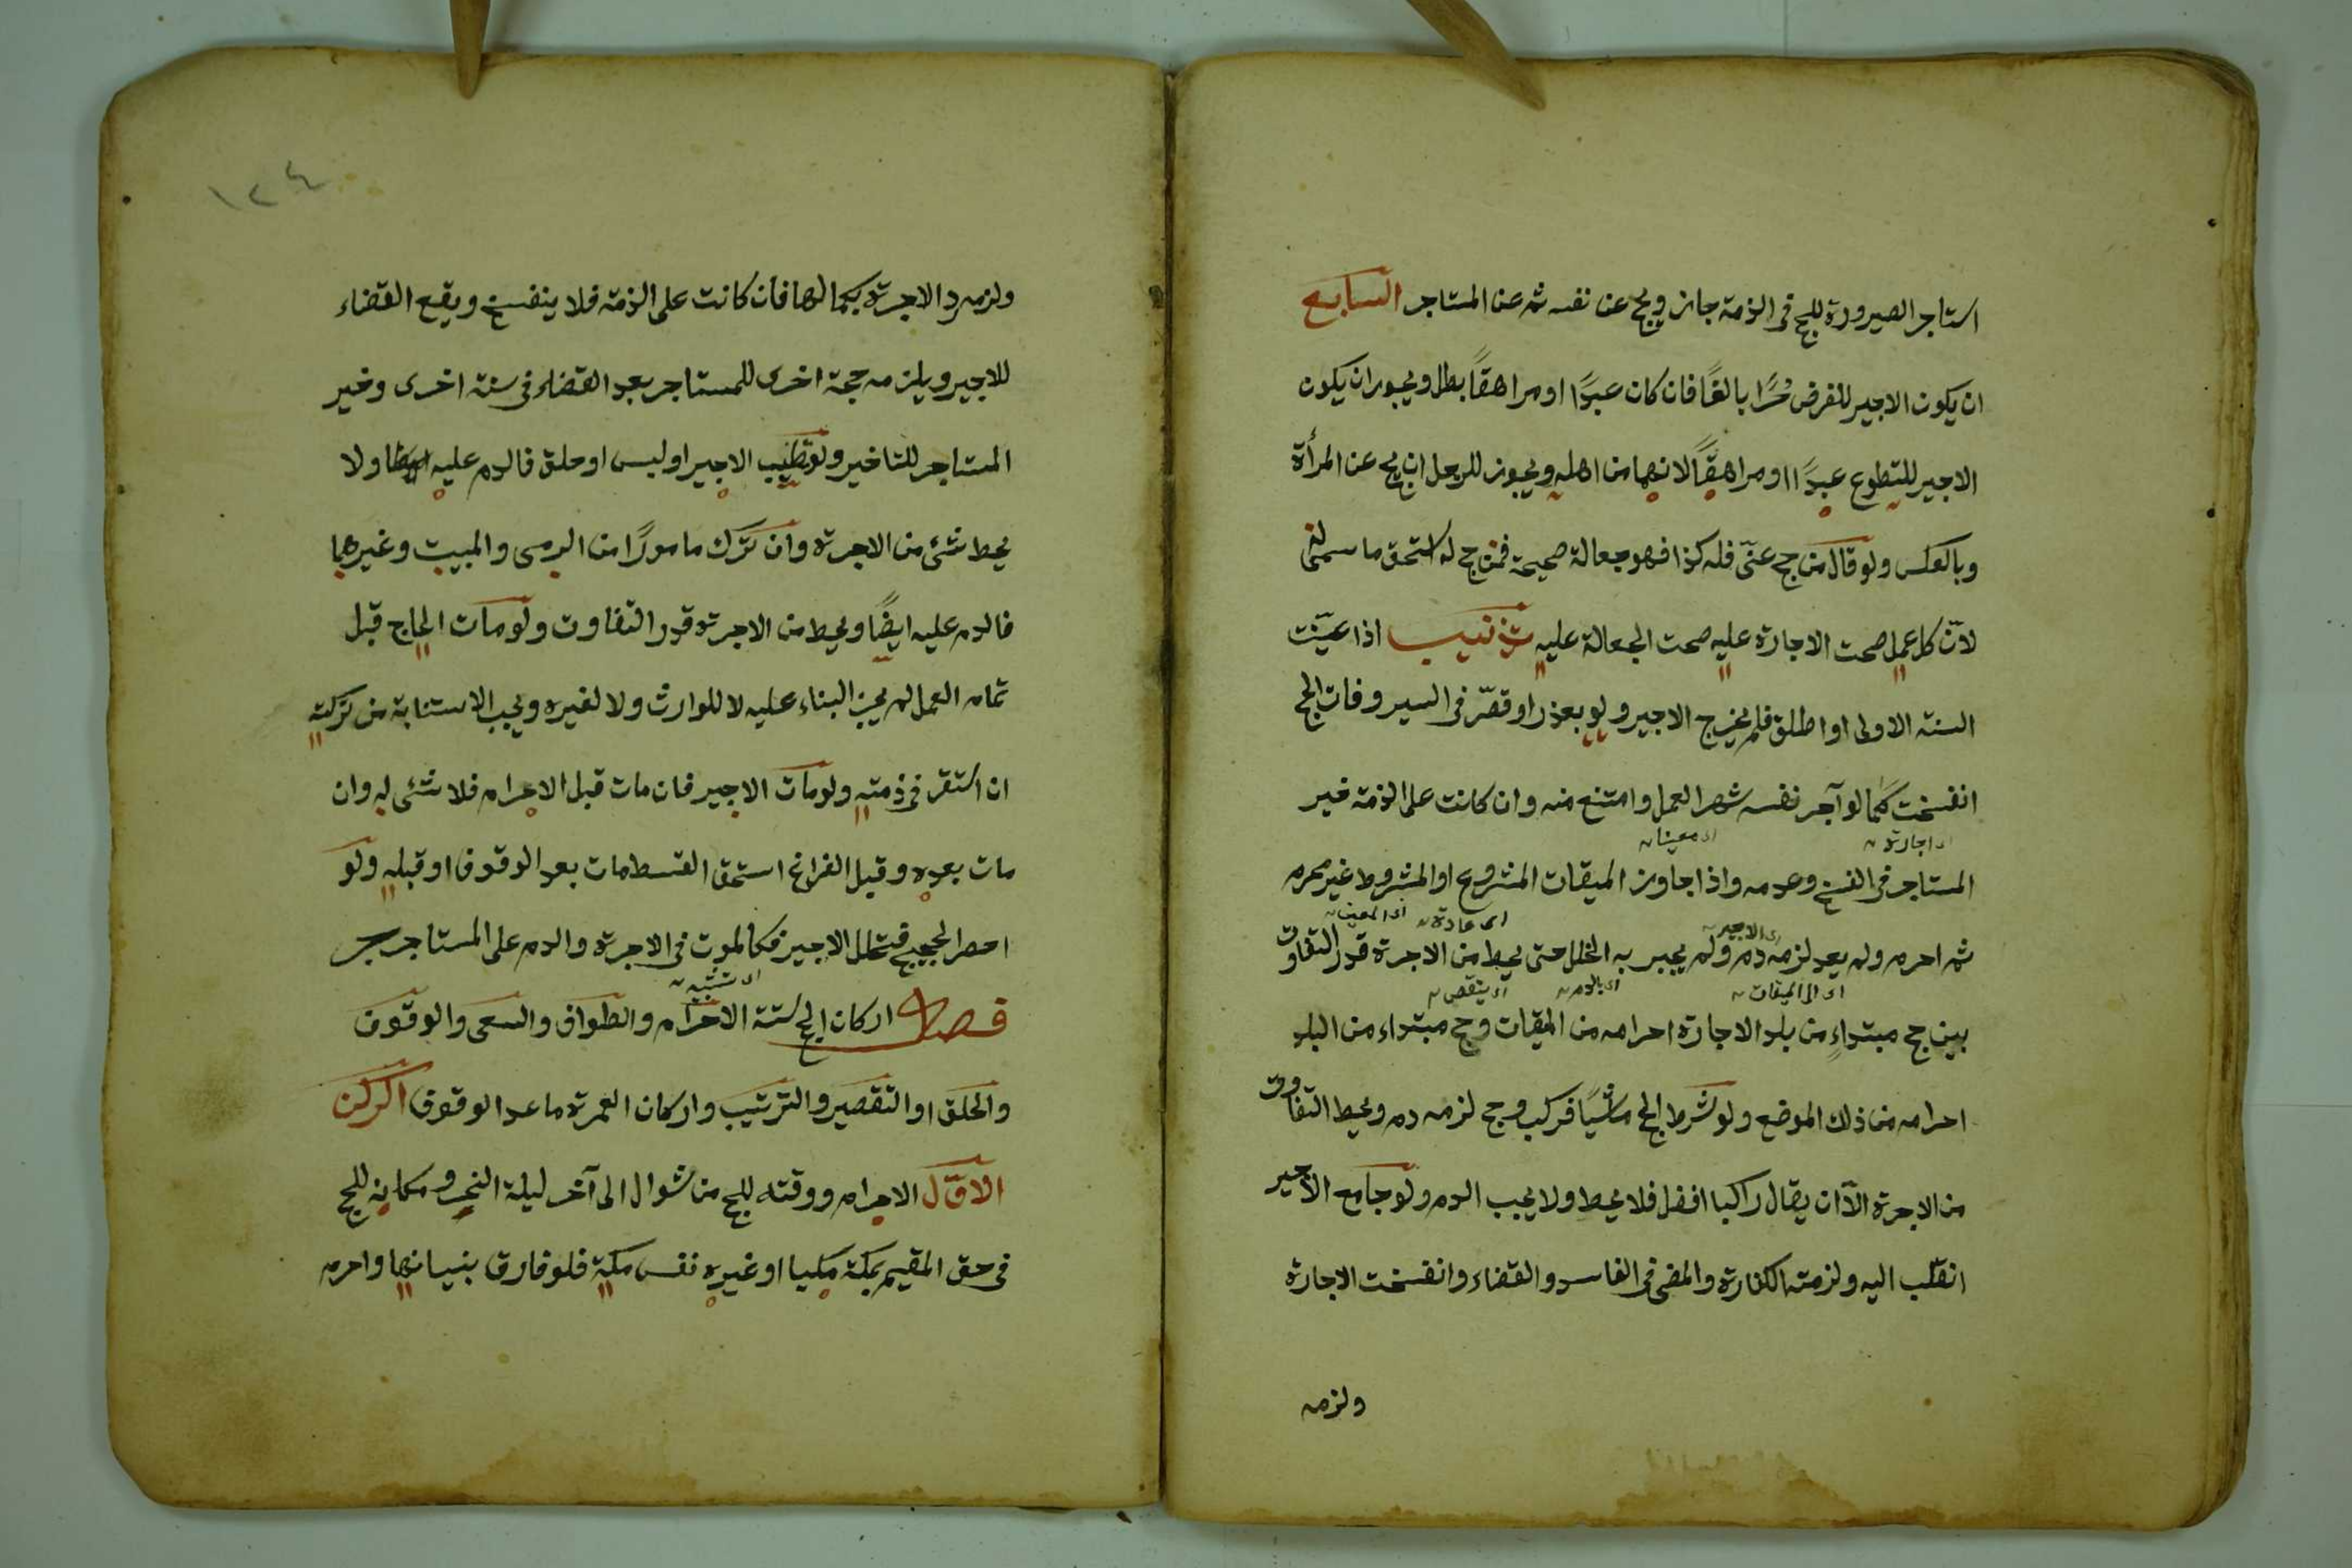 استاجر الصيرورة للحج فى الذمة جاز ويحج عن نفسه ثم عن المستاجر السابع
ان يكون الاجير للفرض حُرًّا بالغًا فان كان عبدًا او مراهقًا بطل ويجوز ان يكون
الاجير للتطوع عبدًا او مراهقًا لانهما من اهله ويجوز للرجل ان يحج عن المرأة
وبالعكس ولو قال من حج عنّى فله كذا فهو جعالة صحيحة فمن حج له استحق ما سمى
لانّ كل عمل صحت الاجارة عليه صحت الجعالة عليه تذنيب اذا عيّنت
السنة الاولى او اطلق فلم يخرج الاجير ولو بعذر او قصّر فى السير وفات الحج
انفسخت كما لو آجر نفسه شهر العمل وامتنع منه وان كانت على الذمة خير
اى اجارته اى معينا
المستاجر فى الفسخ وعدمه واذا جاوز الميقات المشروع او المشروط غير محرم
اى الاجير اى عادة اى المعين
ثم احرم ولم يعد لزمه دم ولم يجبر به الخلل حتى يحط من الاجرة قدر التفاوت
اى الى الميقات اى بالدم اى ينقص
بين حج مبتداءٍ من بلد الاجارة احرامه من الميقات وحج مبتداء من البلد
احرامه من ذلك الموضع ولو شرط الحج ماشيًا فركب وحج لزمه دم ويحط التفاوت
من الاجرة الّا ان يقال راكبا افضل فلا يحط ولا يجب الدم ولو جامع الاجير
انقلب اليه ولزمته الكفارة والمضى فى الفاسد والقضاء وانفسخت الاجارة
ولزمه
١٢٤
ولزمه رد الاجرة بكمالها فان كانت على الذمة فلا ينفسخ ويقع القضاء
للاجير ويلزمه حجة اخرى للمستاجر بعد القضاء فى سنة اخرى وخير
المستاجر للتاخير ولو تطيب الاجير او لبس او حلق فالدم عليه ولا
يحط شئ من الاجرة وان ترك مامورًا من الرمى والمبيت وغيرهما
فالدم عليه ايضًا ويحط من الاجرة قدر التفاوت ولو مات الحاج قبل
تمام العمل لم يجز البناء عليه لا للوارث ولا لغيره ويجب الاستنابة من تركته
ان استقر فى ذمته ولو مات الاجير فان مات قبل الاحرام فلا شئ له وان
مات بعده وقبل الفراغ استحق القسط مات بعد الوقوف او قبله ولو
احصر الحجيج فتحلل الاجير فكالموت فى الاجرة والدم على المستاجر
فصل اركان الحج ستة الاحرام والطواف والسعى والوقوف
والحلق او التقصير والترتيب واركان العمرة ما عدا الوقوف الركن
الاوّل الاحرام ووقته للحج من شوال الى آخر ليلة النحر ومكانه للحج
فى حق المقيم بمكة مكيا او غيره نفس مكة فلو فارق بنيانها واحرم